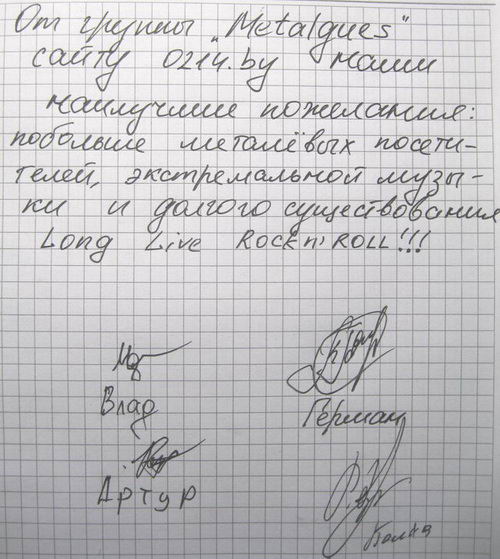 От группы „Metalgues"
сайту 0214.by наши
наилучшие пожелания:
побольше металёвых посети-
телей, экстремальной музы-
ки и долгого существования
Long Live Rock n' Roll!!!
Влад
Герман
Артур